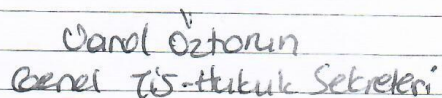 Varol Öztorun
Genel TİS-Hukuk Sekreteri